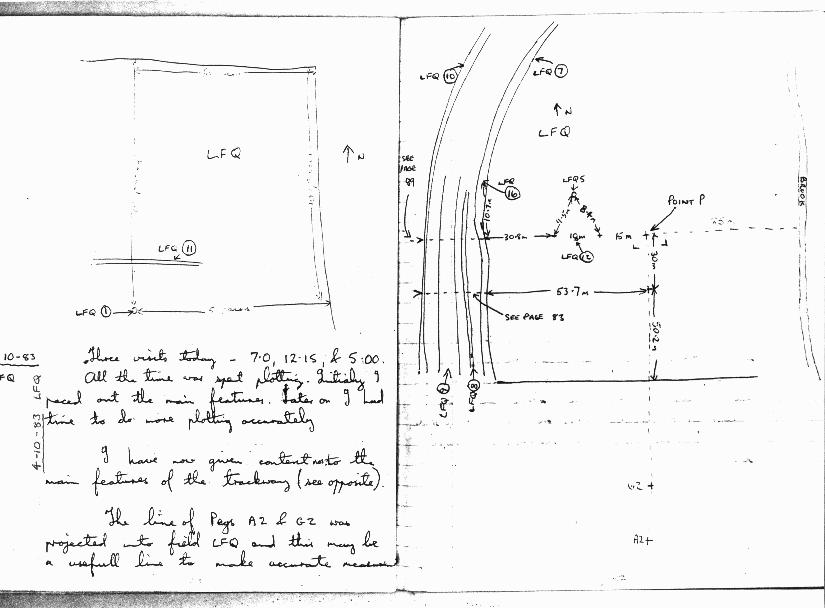 LFQ
N
LFQ 11
LFQ 1
10-83
FQ
4-10-83 LFQ
Three visits today - 7.0, 12.15, & 5.00.
All the time was spent plotting. Initially I
paced out the main features. Later on I had
time to do more plotting accurately
I have now given context nos to the
main features of the trackway (see opposite).
The line of Pegs A2 & G2 was
projected into field LFQ and this may be
a usefull line to make accurate measurem
LFQ 10
LFQ 7
N
LFQ
SEE PAGE 89
LFQ 16
10.7m
LFQ5
4.5m
8.4m
POINT P
BROOK
30.8m
18m
15m
LFQ 12
30m
53.7m
SEE PAGE 83
50.2m
LFQ 9
LFQ 8
G2 +
A2 +